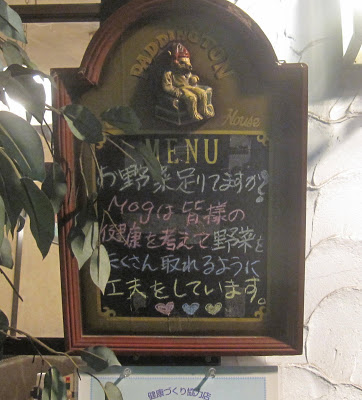 PADDINGTON
House
MENU
お野菜足りてますか?
Mogは皆様の
健康を考えて野菜を
たくさん取れるように
工夫をしています。
健康づくり協力店